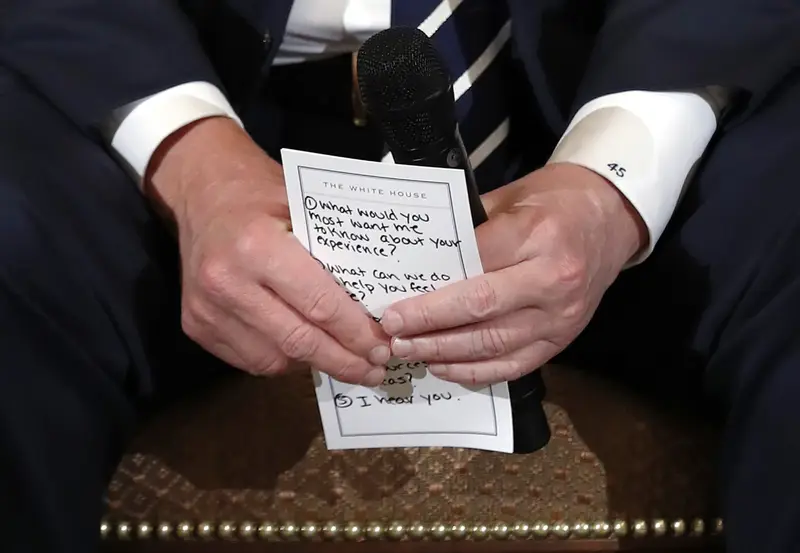 45
THE WHITE HOUSE
① What would you
most want me
to know about your
experience?
What can we do
help you feel
?
⑤ I hear you.